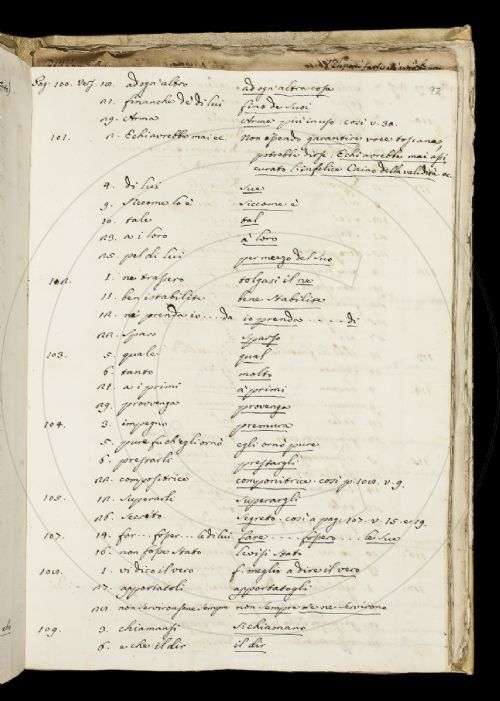 92
Pag. 100. Vers. 10. ad ogn'altro ad ogn'altra cosa
21. finanche de' di lui fino de Suoi
29. Arma Arme più in uso. così v. 30.
101. 2. Echi avrebbe mai ec. Non essendo garantire voce toscana
potrebbe dirsi: Echi avrebbe mai assi
curato l'infelice Caino della validità ec.
4. di lui Sue
9. Siccome lo è Siccome è
10. tale tal
23. a i loro à loro
25. pel di lui per mezzo del Suo
102. 1. ne trassero tolgasi il ne
11. ben istabilite bene Stabilite
12. ne prenda io .... da io prenda .... di
22. Spaso Sparso
103. 5. quale qual
6. tanto molto
22. a i primi a primi
29. provvenga provenga
104. 3. impegno premura
5. pure fu ch'egli ornò egli ornò pure
6. prestarli prestargli
22. compositrice componitrice. così p. 108. v. 9.
105. 12. Superarli Superargli
26. Secreto Segreto. così a pag. 107. v. 15. e 19.
107. 14. for... fosser... le di lui fare .... fossero ... le Sue
16. non fosse stato Levisi Stato
108. 1. vi dico il vero f. meglio a dire il vero
27. apportatoli apportatogli
29. non servironsene sempre non sempre se ne servirono
109. 3. chiamansi Si chiamano
6. e che il dir il dir